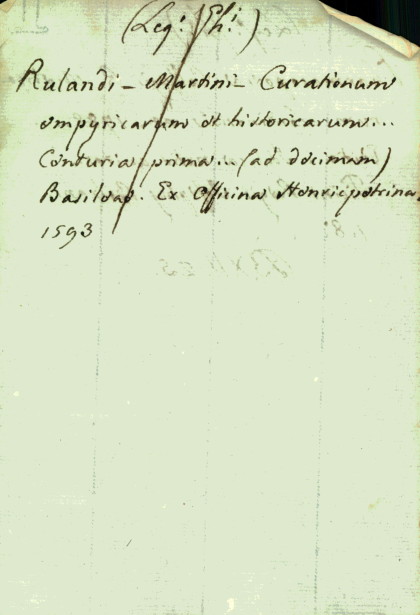 (Leg: Ph:)
Rulandi - Martini - Curationum
empyricarum et historicarum...
Centuria prima... (ad decimam)
Basileae. Ex Officina Henricpetrina.
1593